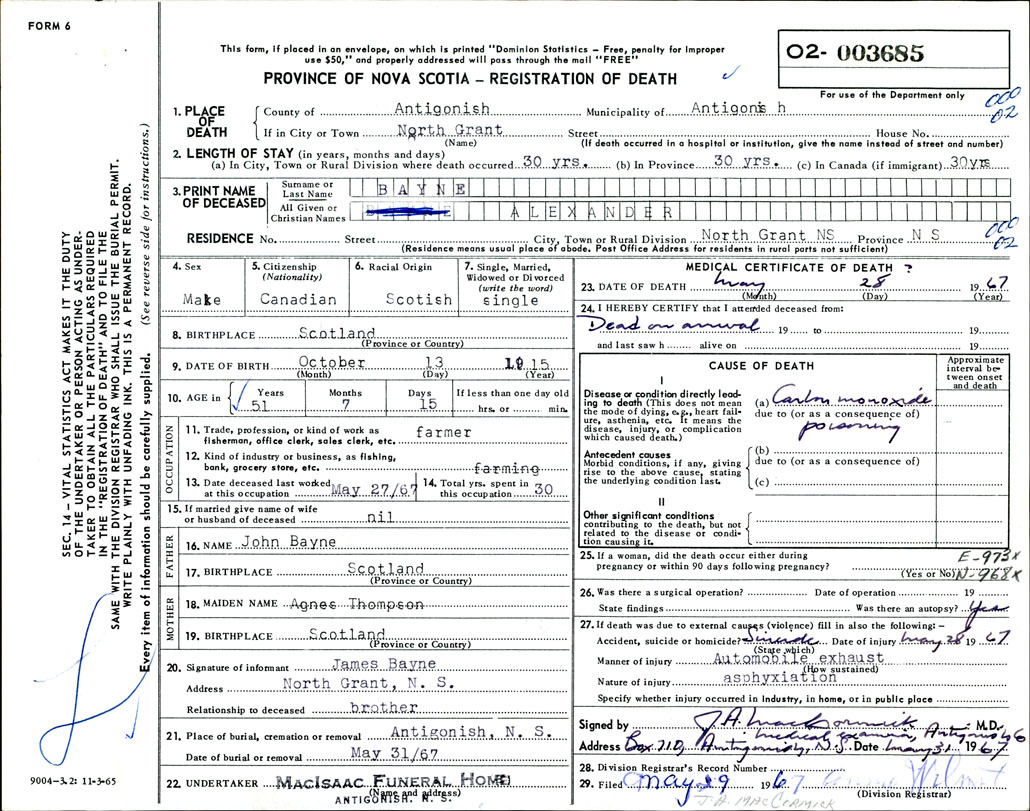 FORM 6
This form, if placed in an envelope, on which is printed "Dominion Statistics – Free, penalty for improper
use $50," and properly addressed will pass through the mail "FREE"
O2- 003685
PROVINCE OF NOVA SCOTIA – REGISTRATION OF DEATH
For use of the Department only
000
02
1. PLACE OF DEATH County of Antigonish Municipality of Antigonis h
If in City or Town North Grant Street House No.
(Name) (If death occurred in a hospital or institution, give the name instead of street and number)
2. LENGTH OF STAY (in years, months and days)
(a) In City, Town or Rural Division where death occurred 30 yrs. (b) In Province 30 yrs. (c) In Canada (if immigrant) 30yrs
3. PRINT NAME OF DECEASED Surname or Last Name BAYNE
All Given or Christian Names ALEXANDER
000
02
RESIDENCE No. Street City, Town or Rural Division North Grant NS Province N S
(Residence means usual place of abode. Post Office Address for residents in rural parts not sufficient)
4. Sex Make
5. Citizenship (Nationality) Canadian
6. Racial Origin Scotish
7. Single, Married, Widowed or Divorced (write the word) single
8. BIRTHPLACE Scotland
(Province or Country)
9. DATE OF BIRTH October 13 1915
(Month) (Day) (Year)
10. AGE in Years 51 Months 7 Days 15 If less than one day old hrs. or min.
OCCUPATION
11. Trade, profession, or kind of work as fisherman, office clerk, sales clerk, etc. farmer
12. Kind of industry or business, as fishing, bank, grocery store, etc. farming
13. Date deceased last worked at this occupation May 27/67
14. Total yrs. spent in this occupation 30
15. If married give name of wife or husband of deceased nil
FATHER
16. NAME John Bayne
17. BIRTHPLACE Scotland
(Province or Country)
MOTHER
18. MAIDEN NAME Agnes Thompson
19. BIRTHPLACE Scotland
(Province or Country)
20. Signature of informant James Bayne
Address North Grant, N. S.
Relationship to deceased brother
21. Place of burial, cremation or removal Antigonish, N. S.
Date of burial or removal May 31/67
22. UNDERTAKER MACISAAC FUNERAL HOME
(Name and address)
ANTIGONISH. N. S.
MEDICAL CERTIFICATE OF DEATH ?
23. DATE OF DEATH May 28 1967
(Month) (Day) (Year)
24. I HEREBY CERTIFY that I attended deceased from:
Dead on arrival 19 to 19
and last saw h alive on 19
CAUSE OF DEATH
Approximate interval between onset and death
I
Disease or condition directly leading to death (This does not mean the mode of dying, e.g., heart failure, asthenia, etc. It means the disease, injury, or complication which caused death.)
(a) Carbon monoxide
due to (or as a consequence of)
poisoning
Antecedent causes
Morbid conditions, if any, giving rise to the above cause, stating the underlying condition last.
(b)
due to (or as a consequence of)
(c)
II
Other significant conditions
contributing to the death, but not related to the disease or condition causing it.
25. If a woman, did the death occur either during pregnancy or within 90 days following pregnancy? (Yes or No)
E-973x
N-968x
26. Was there a surgical operation? Date of operation 19
State findings Was there an autopsy? Yes
27. If death was due to external causes (violence) fill in also the following: –
Accident, suicide or homicide? Suicide Date of injury May 28 1967
(State which)
Manner of injury Automobile exhaust
(How sustained)
Nature of injury asphyxiation
Specify whether injury occurred in industry, in home, or in public place
Signed by J.A. MacCormick M.D.
medical examiner, Antigonish
Address Box 710, Antigonish, N.S. Date May 31 1967
28. Division Registrar's Record Number
29. Filed May 29 1967
(Division Registrar)
J.A. MACCORMICK
SEC. 14 – VITAL STATISTICS ACT MAKES IT THE DUTY
OF THE UNDERTAKER OR PERSON ACTING AS UNDER-
TAKER TO OBTAIN ALL THE PARTICULARS REQUIRED
IN THE "REGISTRATION OF DEATH" AND TO FILE THE
SAME WITH THE DIVISION REGISTRAR WHO SHALL ISSUE THE BURIAL PERMIT.
WRITE PLAINLY WITH UNFADING INK. THIS IS A PERMANENT RECORD.
Every item of information should be carefully supplied. (See reverse side for instructions.)
9004-3.2: 11-3-65